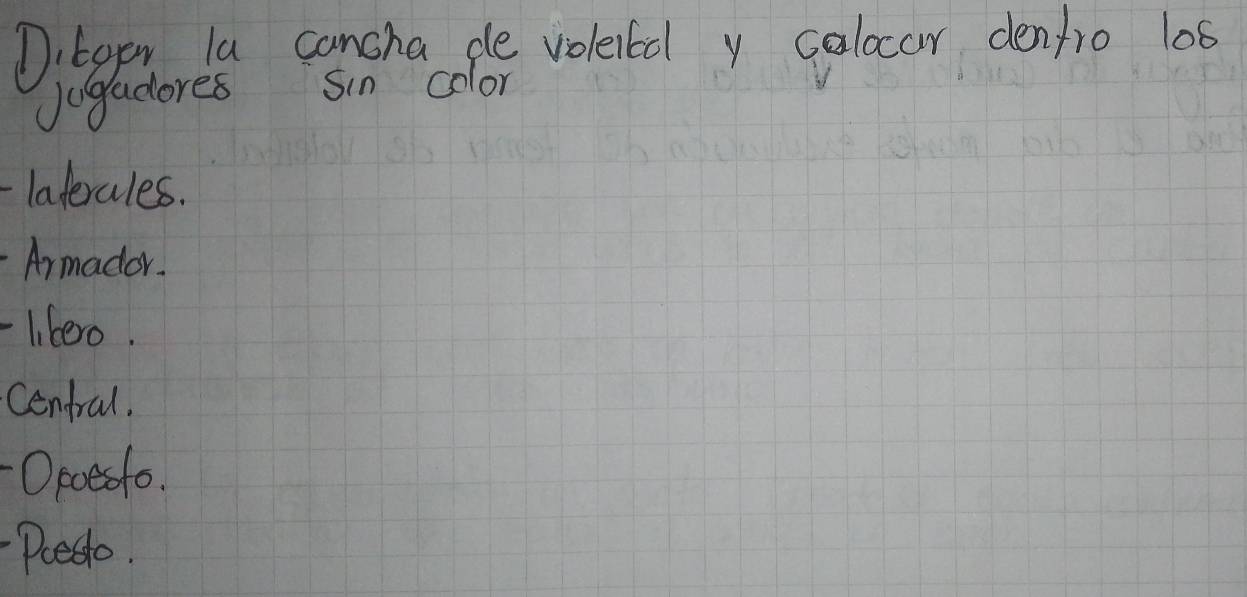 Dibujar la cancha de voleibol y colocar dentro los
jugadores sin color
- laterales.
- Armador.
- libero.
Central.
- Opuesto.
- Puesto.